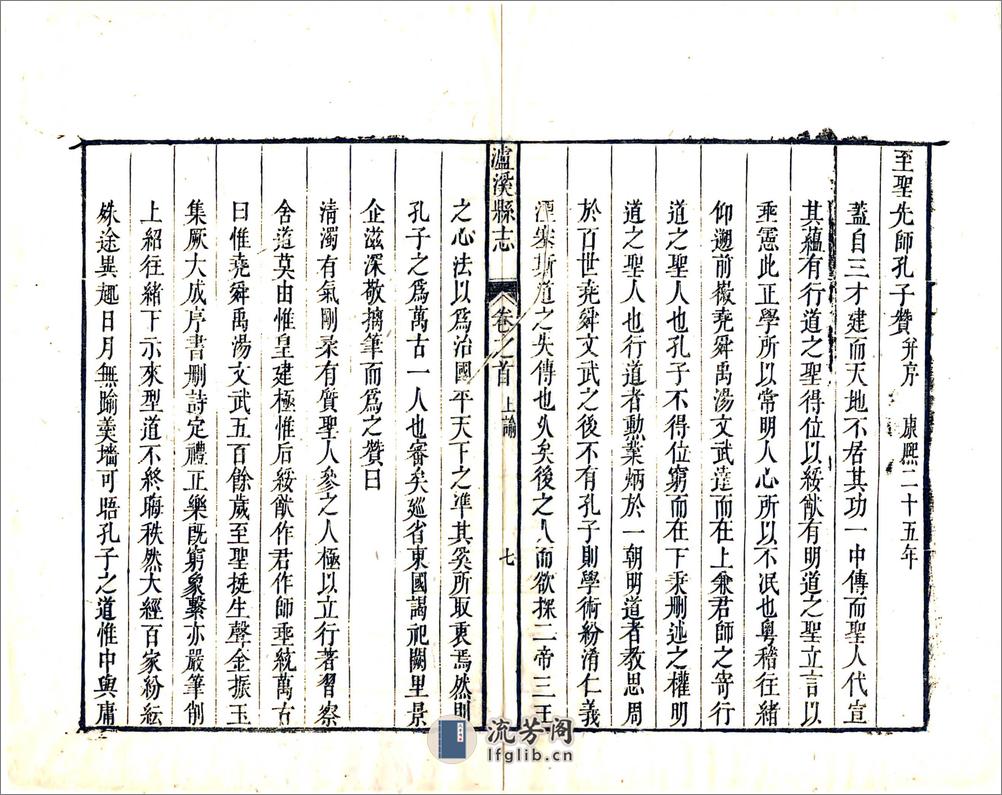 至聖先師孔子贊并序 康熙二十五年
蓋自三才建而天地不居其功一中傳而聖人代宣
其蘊有行道之聖得位以綏猷有明道之聖立言以
垂憲此正學所以常明人心所以不泯也粵稽往緒
仰遡前徽堯舜禹湯文武達而在上兼君師之寄行
道之聖人也孔子不得位窮而在下秉刪述之權明
道之聖人也行道者勲業炳於一朝明道者教思周
於百世堯舜文武之後不有孔子則學術紛淆仁義
湮塞斯道之失傳也乆矣後之人而欲探二帝三王
瀘溪縣志 卷之首 上諭 七
之心法以爲治國平天下之準其奚所取衷焉然則
孔子之爲萬古一人也審矣廵省東國謁祀闕里景
企滋深敬摛筆而爲之贊曰
清濁有氣剛柔有質聖人參之人極以立行著習察
舍道莫由惟皇建極惟后綏猷作君作師垂統萬古
曰惟堯舜禹湯文武五百餘歲至聖挺生聲金振玉
集厥大成序書刪詩定禮正樂旣窮象繫亦嚴筆削
上紹往緒下示來型道不終晦秩然大經百家紛紜
殊途異趣日月無踰羹墻可晤孔子之道惟中與庸
流芳阁
lfglib.cn